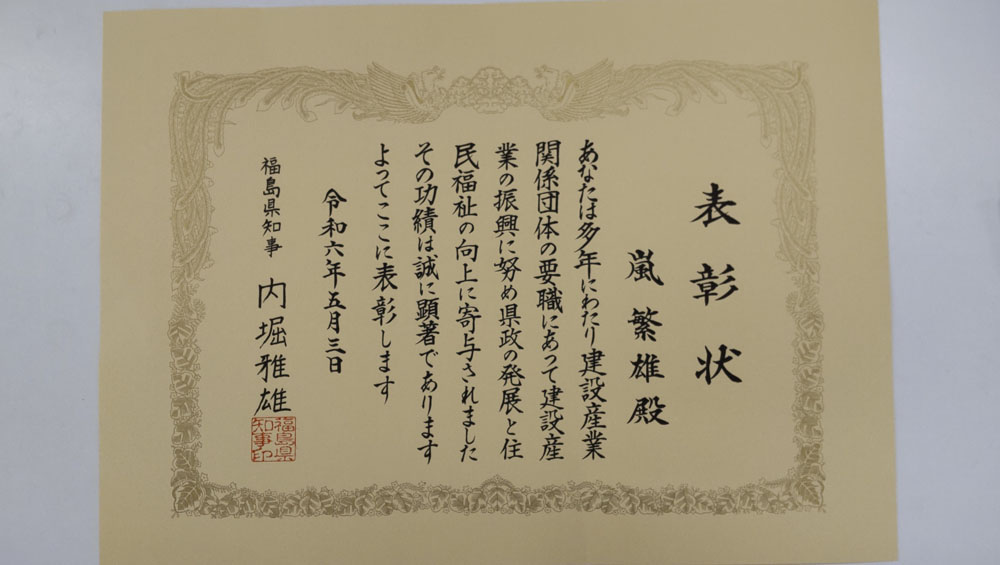 表彰状
嵐繁雄殿
あなたは多年にわたり建設産業
関係団体の要職にあって建設産
業の振興に努め県政の発展と住
民福祉の向上に寄与されました
その功績は誠に顕著であります
よってここに表彰します
令和六年五月三日
福島県知事 内堀雅雄
福島県
知事印